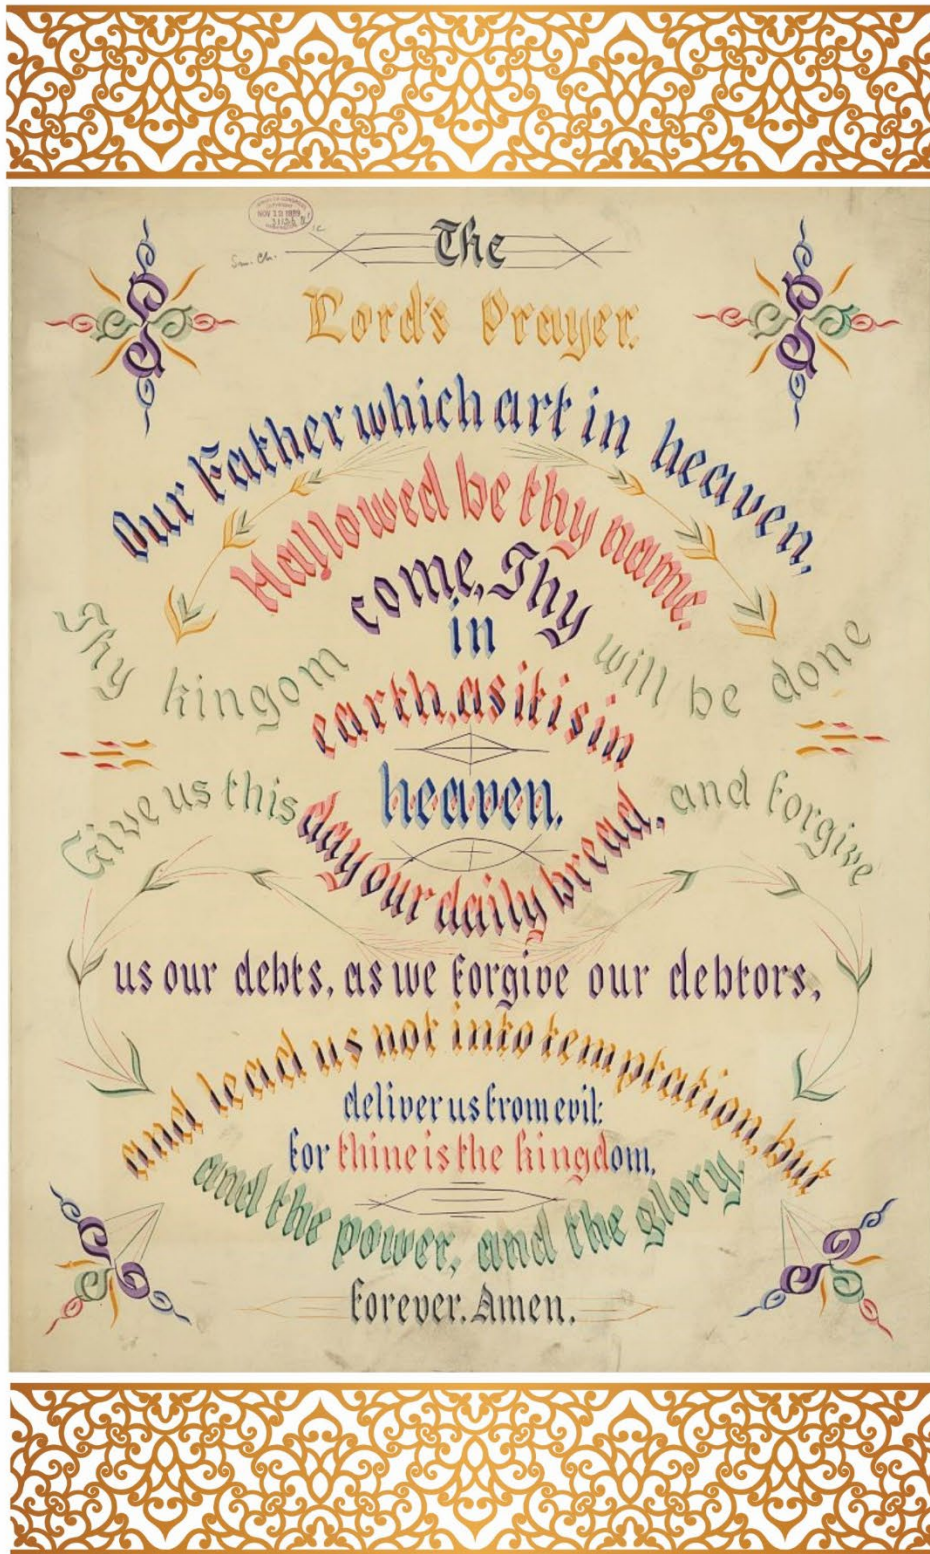 The
Lord's Prayer.
Our Father which art in heaven,
Hallowed be thy name.
Thy kingom
come, Thy
will be done
in
earth, as it is in
heaven.
Give us this
day our daily bread,
and forgive
us our debts, as we forgive our debtors,
and lead us not into temptation, but
deliver us from evil:
for thine is the kingdom,
and the power, and the glory.
forever. Amen.